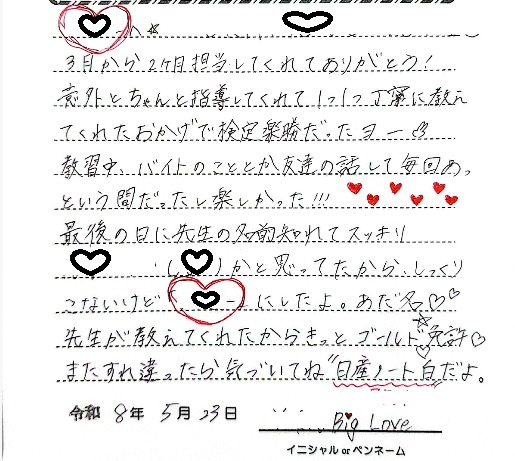 3月から2ヶ月担当してくれてありがとう!
意外とちゃんと指導してくれて1つ1つ丁寧に教え
てくれたおかげで検定楽勝だったヨー
教習中、バイトのこととか友達の話して毎回あっ
という間だったし楽しかった!!!
最後の日に先生の名前知れてスッキリ
かと思ってたから、しっくり
こないけど にしたよ。あだ名
先生が教えてくれたからきっとゴールド免許
またすれ違ったら気づいてね"日産ノート白だよ。
令和 8年 5月 23日
Big Love
イニシャル or ペンネーム